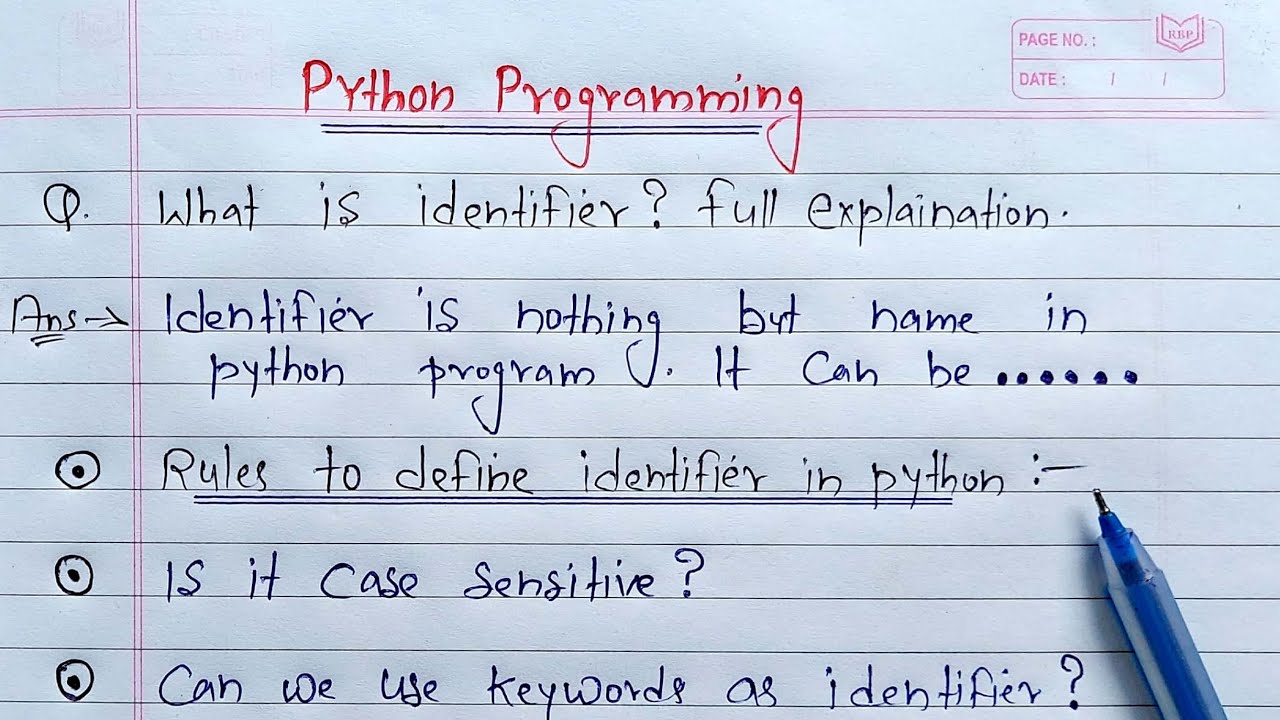 PAGE NO. :
RBP
DATE : / /
Python Programming
Q. What is identifier? full explaination.
Ans→ Identifier is nothing but name in
python program. It can be ......
Rules to define identifier in python :-
Is it case sensitive?
Can we use keywords as identifier?